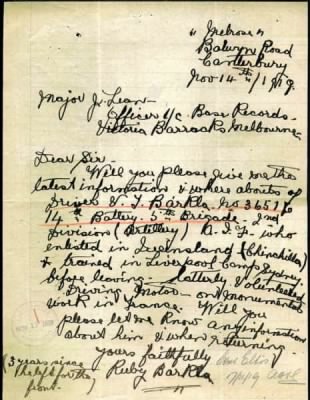 "Melrose"
Balwyn Road
Canterbury
Nov 14th/19
Major J. Lean
Officer i/c Base Records
Victoria Barracks Melbourne
Dear Sir -
Will you please give me the
latest information & where abouts of
Driver V. J. Barkla. No 36516
14th Battery. 5th Brigade. 2nd
Division (Artillery) A.I.F. who
enlisted in Queensland (Chinchilla)
& trained in Liverpool Camp Sydney.
before leaving - latterly Volunteered
driving Motor - on monumental
work in France. Will you
please let me know any information
about him & when returning.
Yours faithfully
Ruby Barkla
3 years since
he left for the
front.